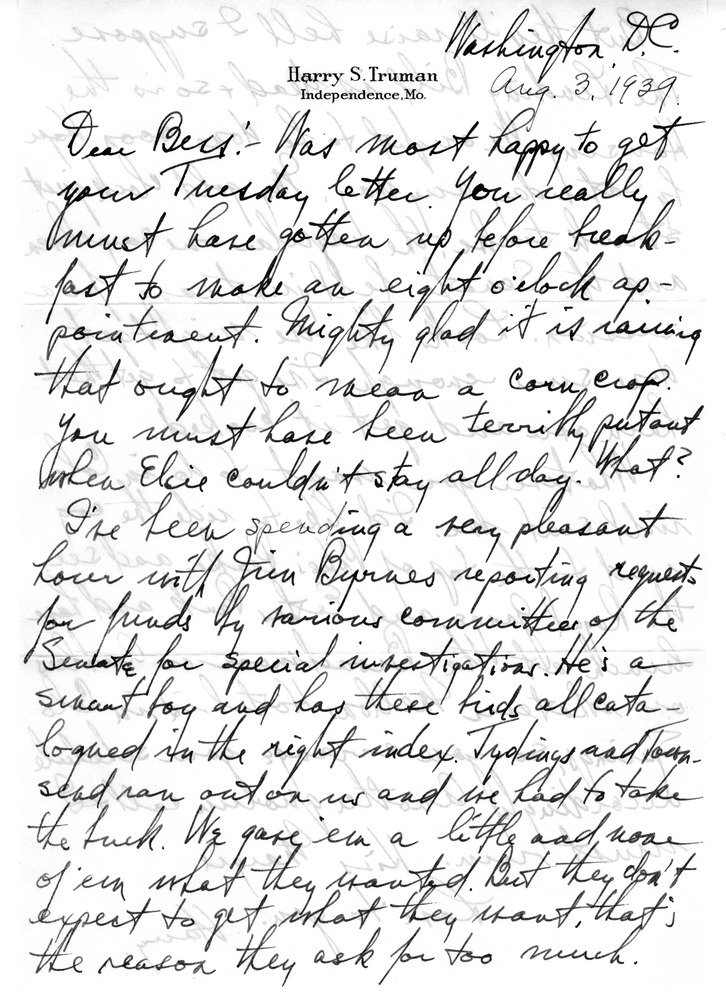 Washington, D.C.
Harry S. Truman
Independence, Mo.
Aug. 3, 1939.
Dear Bess:- Was most happy to get
your Tuesday letter. You really
must have gotten up before break-
fast to make an eight o'clock ap-
pointment. Mighty glad it is raining
that ought to mean a corn crop.
You must have been terribly put out
when Elsie couldn't stay all day. What?
I've been spending a very pleasant
hour with Jim Byrnes reporting requests
for funds by various committees of the
Senate for special investigations. He's a
smart boy and has these birds all cata-
logued in the right index. Tydings and Town-
send ran out on us and we had to take
the buck. We gave 'em a little and none
of 'em what they wanted. But they don't
expect to get what they want, that's
the reason they ask for too much.